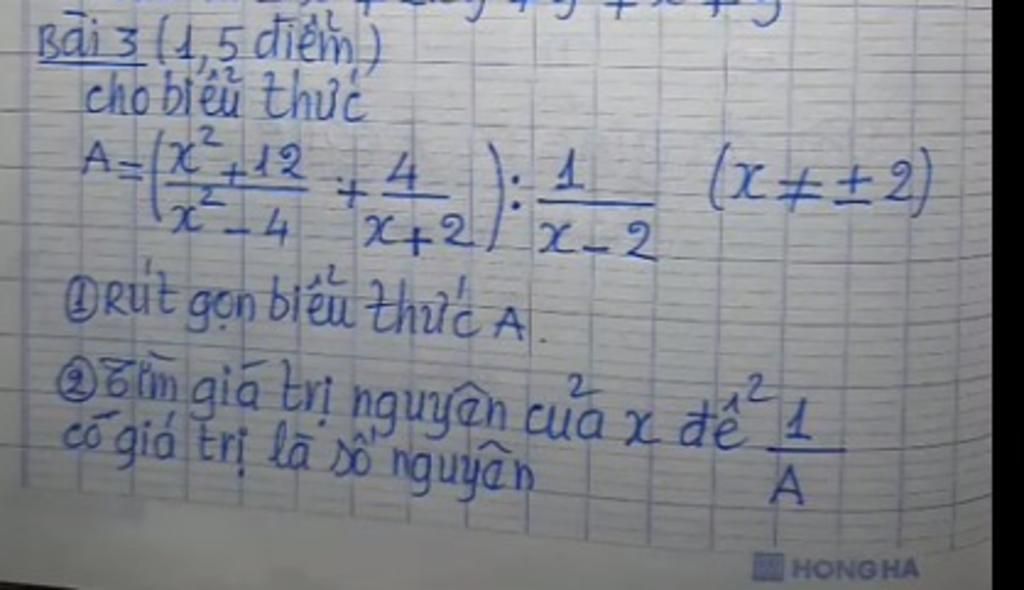 Bài 3 (1,5 điểm)
cho biểu thức
A = (x² + 12 / x² - 4 + 4 / x + 2) : 1 / x - 2 (x ≠ ± 2)
① Rút gọn biểu thức A.
② Tìm giá trị nguyên của x để 1 / A
có giá trị là số nguyên
HONG HA